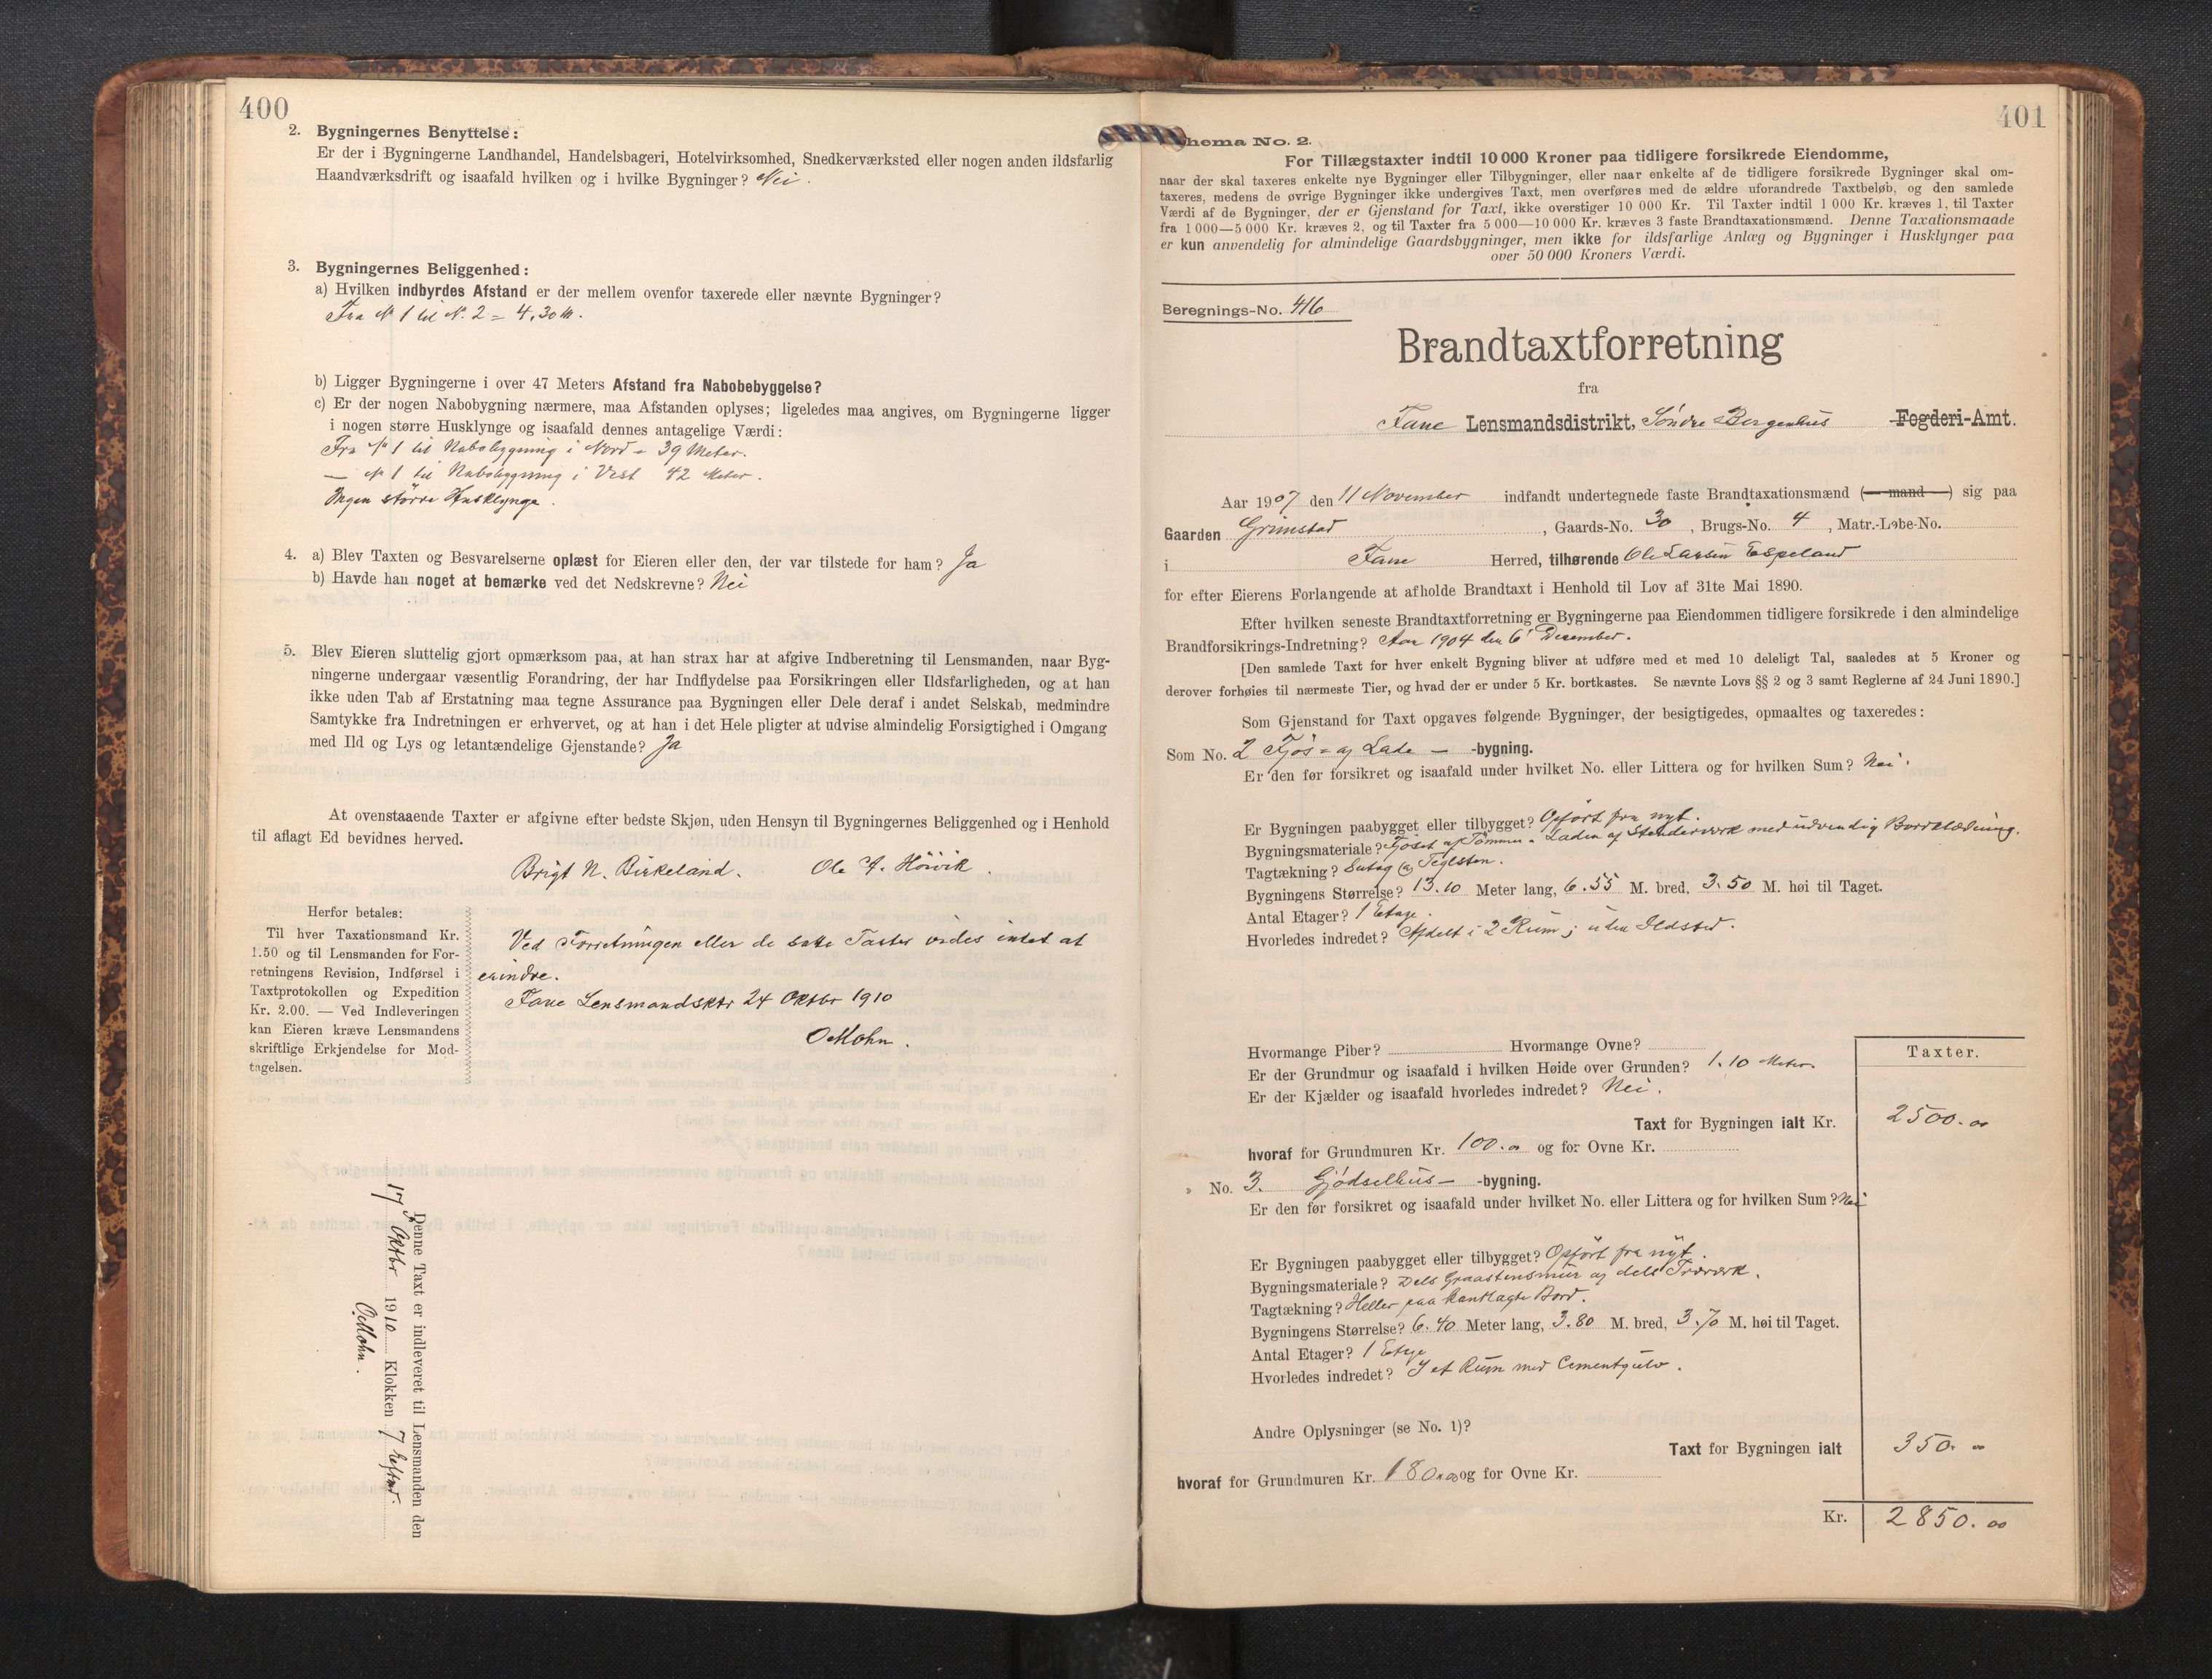 400
2. Bygningernes Benyttelse:
Er der i Bygningerne Landhandel, Handelsbageri, Hotelvirksomhed, Snedkerværksted eller nogen anden ildsfarlig
Haandværksdrift og isaafald hvilken og i hvilke Bygninger? Nei.
3. Bygningernes Beliggenhed:
a) Hvilken indbyrdes Afstand er der mellem ovenfor taxerede eller nævnte Bygninger?
Fra No 1 til No. 2 = 4,30 M.
b) Ligger Bygningerne i over 47 Meters Afstand fra Nabobebyggelse?
c) Er der nogen Nabobygning nærmere, maa Afstanden oplyses; ligeledes maa angives, om Bygningerne ligger
i nogen større Husklynge og isaafald dennes antagelige Værdi:
Fra No 1 til Nabobygning i Nord = 39 Meter.
— No 1 til Nabobygning i Vest 42 Meter.
Ingen större Husklynge.
4. a) Blev Taxten og Besvarelserne oplæst for Eieren eller den, der var tilstede for ham? Ja
b) Havde han noget at bemærke ved det Nedskrevne? Nei
5. Blev Eieren sluttelig gjort opmærksom paa, at han strax har at afgive Indberetning til Lensmanden, naar Byg-
ningerne undergaar væsentlig Forandring, der har Indflydelse paa Forsikringen eller Ildsfarligheden, og at han
ikke uden Tab af Erstatning maa tegne Assurance paa Bygningen eller Dele deraf i andet Selskab, medmindre
Samtykke fra Indretningen er erhvervet, og at han i det Hele pligter at udvise almindelig Forsigtighed i Omgang
med Ild og Lys og letantændelige Gjenstande? Ja
At ovenstaaende Taxter er afgivne efter bedste Skjøn, uden Hensyn til Bygningernes Beliggenhed og i Henhold
til aflagt Ed bevidnes herved.
Brigt N. Birkeland. Ole A. Höivik.
Herfor betales:
Til hver Taxationsmand Kr.
1.50 og til Lensmanden for For-
retningens Revision, Indførsel i
Taxtprotokollen og Expedition
Kr. 2.00. — Ved Indleveringen
kan Eieren kræve Lensmandens
skriftlige Erkjendelse for Mod-
tagelsen.
Ved Forretningen eller de satte Taxter vides intet at
erindre.
Fane Lensmandsktr 24 Oktbr 1910
O Mohn.
Denne Taxt er indleveret til Lensmanden den
17 Oktbr 1910 Klokken 7 Efterm.
O Mohn.
401
hema No. 2.
For Tillægstaxter indtil 10 000 Kroner paa tidligere forsikrede Eiendomme,
naar der skal taxeres enkelte nye Bygninger eller Tilbygninger, eller naar enkelte af de tidligere forsikrede Bygninger skal om-
taxeres, medens de øvrige Bygninger ikke undergives Taxt, men overføres med de ældre uforandrede Taxtbeløb, og den samlede
Værdi af de Bygninger, der er Gjenstand for Taxt, ikke overstiger 10 000 Kr. Til Taxter indtil 1 000 Kr. kræves 1, til Taxter
fra 1 000—5 000 Kr. kræves 2, og til Taxter fra 5 000—10 000 Kr. kræves 3 faste Brandtaxationsmænd. Denne Taxationsmaade
er kun anvendelig for almindelige Gaardsbygninger, men ikke for ildsfarlige Anlæg og Bygninger i Husklynger paa
over 50 000 Kroners Værdi.
Beregnings-No. 416
Brandtaxtforretning
fra
Fane Lensmandsdistrikt, Söndre Bergenhus Fogderi-Amt.
Aar 1907 den 11 November indfandt undertegnede faste Brandtaxationsmænd (— mand —) sig paa
Gaarden Grimstad, Gaards-No. 30, Brugs-No. 4, Matr.-Løbe-No.
i Fane Herred, tilhørende Ole Larsen Espeland
for efter Eierens Forlangende at afholde Brandtaxt i Henhold til Lov af 31te Mai 1890.
Efter hvilken seneste Brandtaxtforretning er Bygningerne paa Eiendommen tidligere forsikrede i den almindelige
Brandforsikrings-Indretning? Aar 1904 den 6' Desember.
[Den samlede Taxt for hver enkelt Bygning bliver at udføre med et med 10 deleligt Tal, saaledes at 5 Kroner og
derover forhøies til nærmeste Tier, og hvad der er under 5 Kr. bortkastes. Se nævnte Lovs §§ 2 og 3 samt Reglerne af 24 Juni 1890.]
Som Gjenstand for Taxt opgaves følgende Bygninger, der besigtigedes, opmaaltes og taxeredes:
Som No. 2 Fjös- og Lade — -bygning.
Er den før forsikret og isaafald under hvilket No. eller Littera og for hvilken Sum? Nei.
Er Bygningen paabygget eller tilbygget? Opfört fra nyt.
Bygningsmateriale? Fjöset af Tömmer. Laden af Stenderverk med udvendig Bordklædning.
Tagtækning? Sutag og Teglsten.
Bygningens Størrelse? 13.10 Meter lang, 6.55 M. bred, 3.50 M. høi til Taget.
Antal Etager? 1 Etage.
Hvorledes indredet? Afdelt i 2 Rum; uden Ildsted.
Hvormange Piber? Hvormange Ovne?
Er der Grundmur og isaafald i hvilken Høide over Grunden? 1.10 Meter.
Er der Kjælder og isaafald hvorledes indredet? Nei.
Taxter.
Taxt for Bygningen ialt Kr. 2500.00
hvoraf for Grundmuren Kr. 100.00 og for Ovne Kr.
» No. 3. Gjödselhus — -bygning.
Er den før forsikret og isaafald under hvilket No. eller Littera og for hvilken Sum? Nei
Er Bygningen paabygget eller tilbygget? Opfört fra nyt.
Bygningsmateriale? Dels Graastensmur og dels Træverk.
Tagtækning? Heller paa kantlagte Bord.
Bygningens Størrelse? 6.40 Meter lang, 3.80 M. bred, 3.70 M. høi til Taget.
Antal Etager? 1 Etage
Hvorledes indredet? I et Rum med Cementgulv.
Andre Oplysninger (se No. 1)?
Taxt for Bygningen ialt 350.00
hvoraf for Grundmuren Kr. 180.00 og for Ovne Kr.
Kr. 2850.00